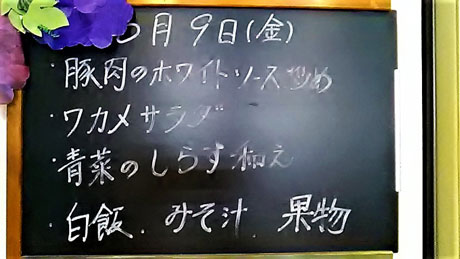 5月9日(金)
・豚肉のホワイトソース炒め
・ワカメサラダ
・青菜のしらす和え
・白飯.みそ汁.果物